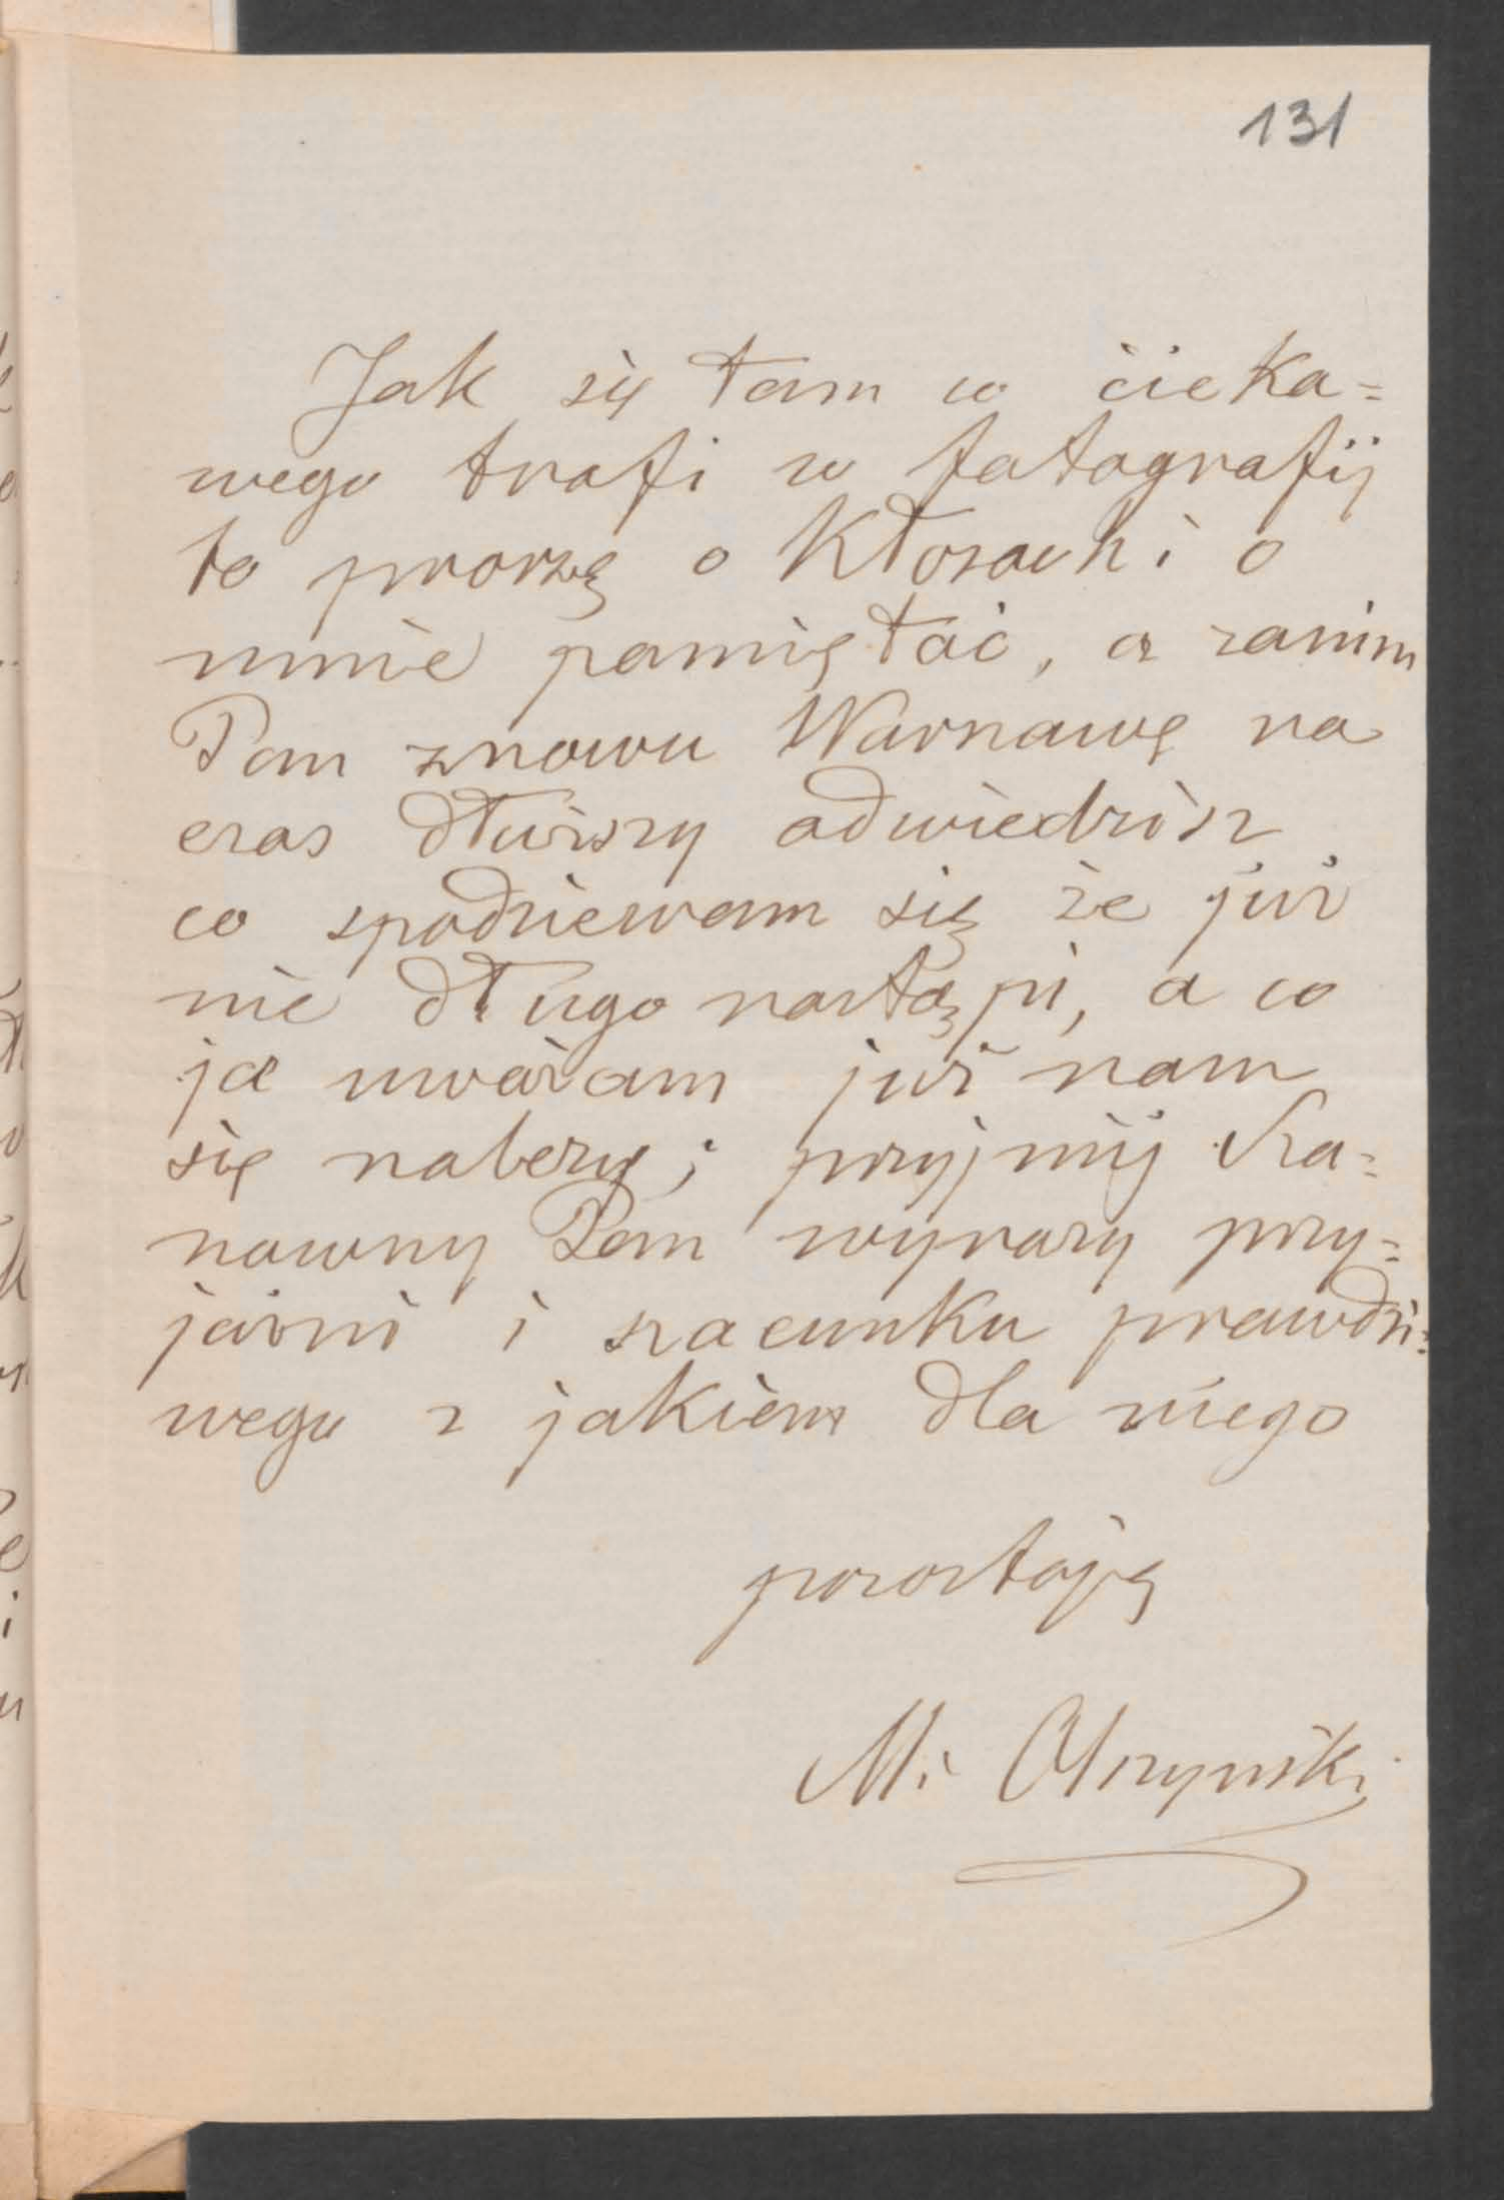 131
Jak się tam co cieka=
wego trafi w fotografij
to proszę o Kłosach i o
mnie pamiętać, a zanim
Pan znowu Warszawę na
czas dłuższy odwiedzisz
co spodziewam się że już
nie długo nastąpi, a co
ja uważam już nam
się należy; przyjmij Sza=
nowny Pan wyrazy przy=
jaźni i szacunku prawdzi=
wego z jakiem dla niego
pozostaję
M. Olszyński